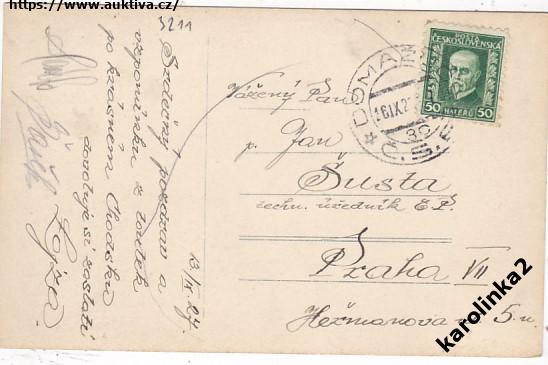 https://www.auktiva.cz/
3211
Srdečný pozdrav a
vzpomínku z toulek
po krásném Chodsku
dovoluje si zaslati
Lojza.
13/IX. 27.
POŠTA
ČESKOSLOVENSKÁ
50 HALÉŘŮ 50
DOMA
16.IX.2
Č.S.
Vážený Pan
Jan
Šusta
techn. úředník
Praha VII
Heřmanova 5
karolinka2